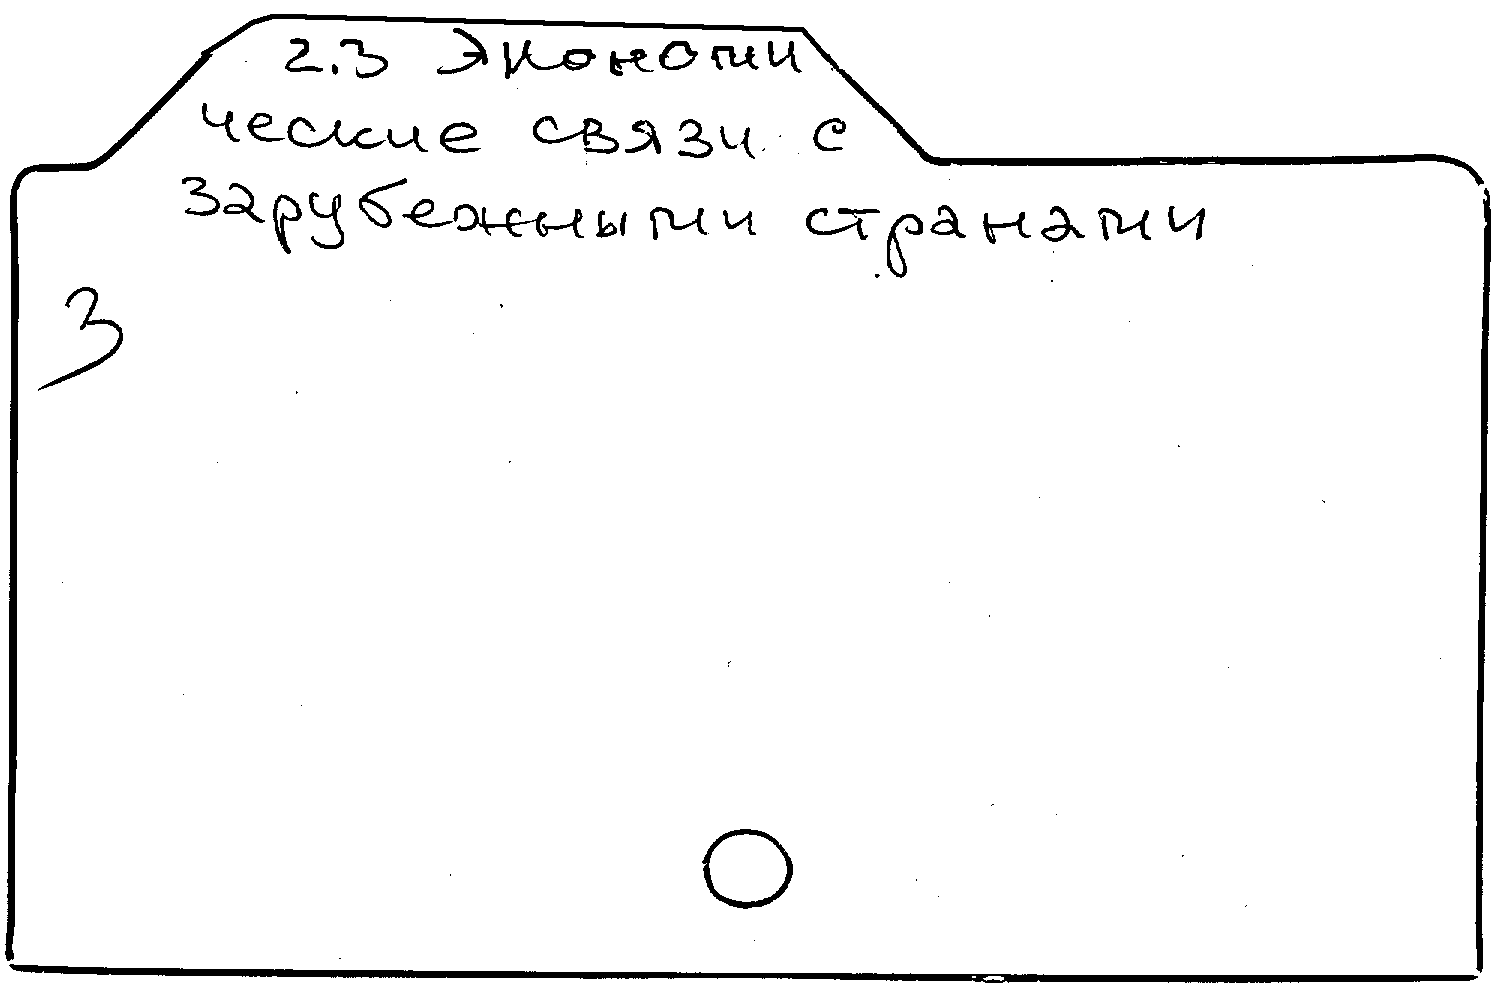 2.3 Экономи
ческие связи с
зарубежными странами
3